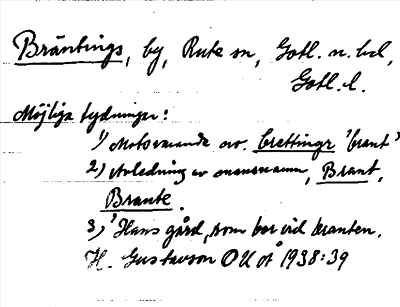 Bräntings, by, Rute sn, Gotl. n. hd,
Gotl. l.
Möjliga tydningar:
1) Motsvarande nv. brettingr 'brant'
2) Avledning av mansnamn, Brant,
Brante.
3) 'Hans gård, som bor vid branten.
H. Gustavson OUÅ 1938:39